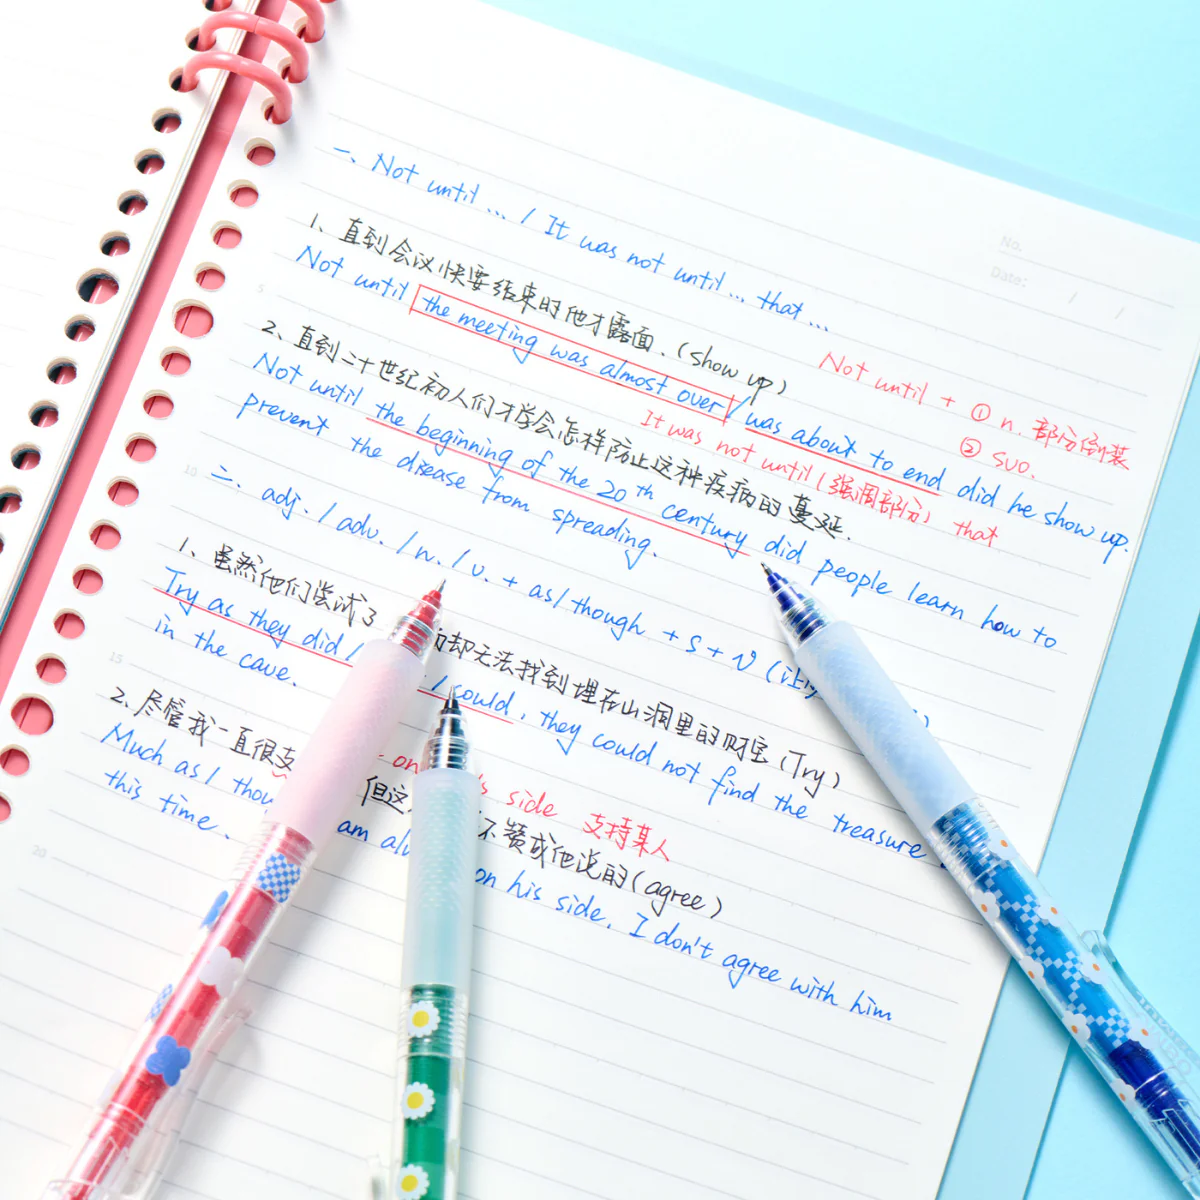 No.
Date: / /
一、Not until ... / It was not until ... that ...
1、直到会议快要结束时他才露面.(show up)
Not until the meeting was almost over / was about to end did he show up.
Not until + ① n. 部分倒装
② suo.
2、直到二十世纪初人们才学会怎样防止这种疫病的蔓延.
It was not until (强调部分) that
Not until the beginning of the 20th century did people learn how to
prevent the disease from spreading.
二、adj. / adv. / n. / v. + as / though + s + v (让
1、虽然他们尝试了 却无法找到埋在山洞里的财宝 (Try)
Try as they did / / could, they could not find the treasure
in the cave.
on side 支持某人
2、尽管我一直很支 但这 不赞成他说的 (agree)
Much as / am on his side, I don't agree with him
this time.
5
10
15
20